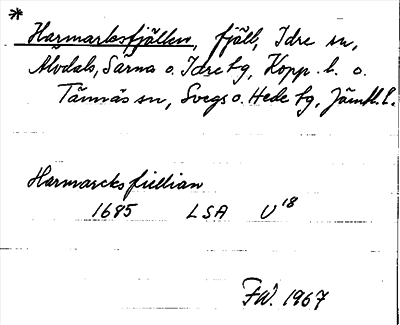 * Harmarksfjällen, fjäll, Idre sn,
Älvdals, Särna o. Idre tg, Kopp. l. o.
Tännäs sn, Svegs o. Hede tg, Jämtl. l.
Harmarcks fiellian
1685 LSA U 18
F.W. 1967